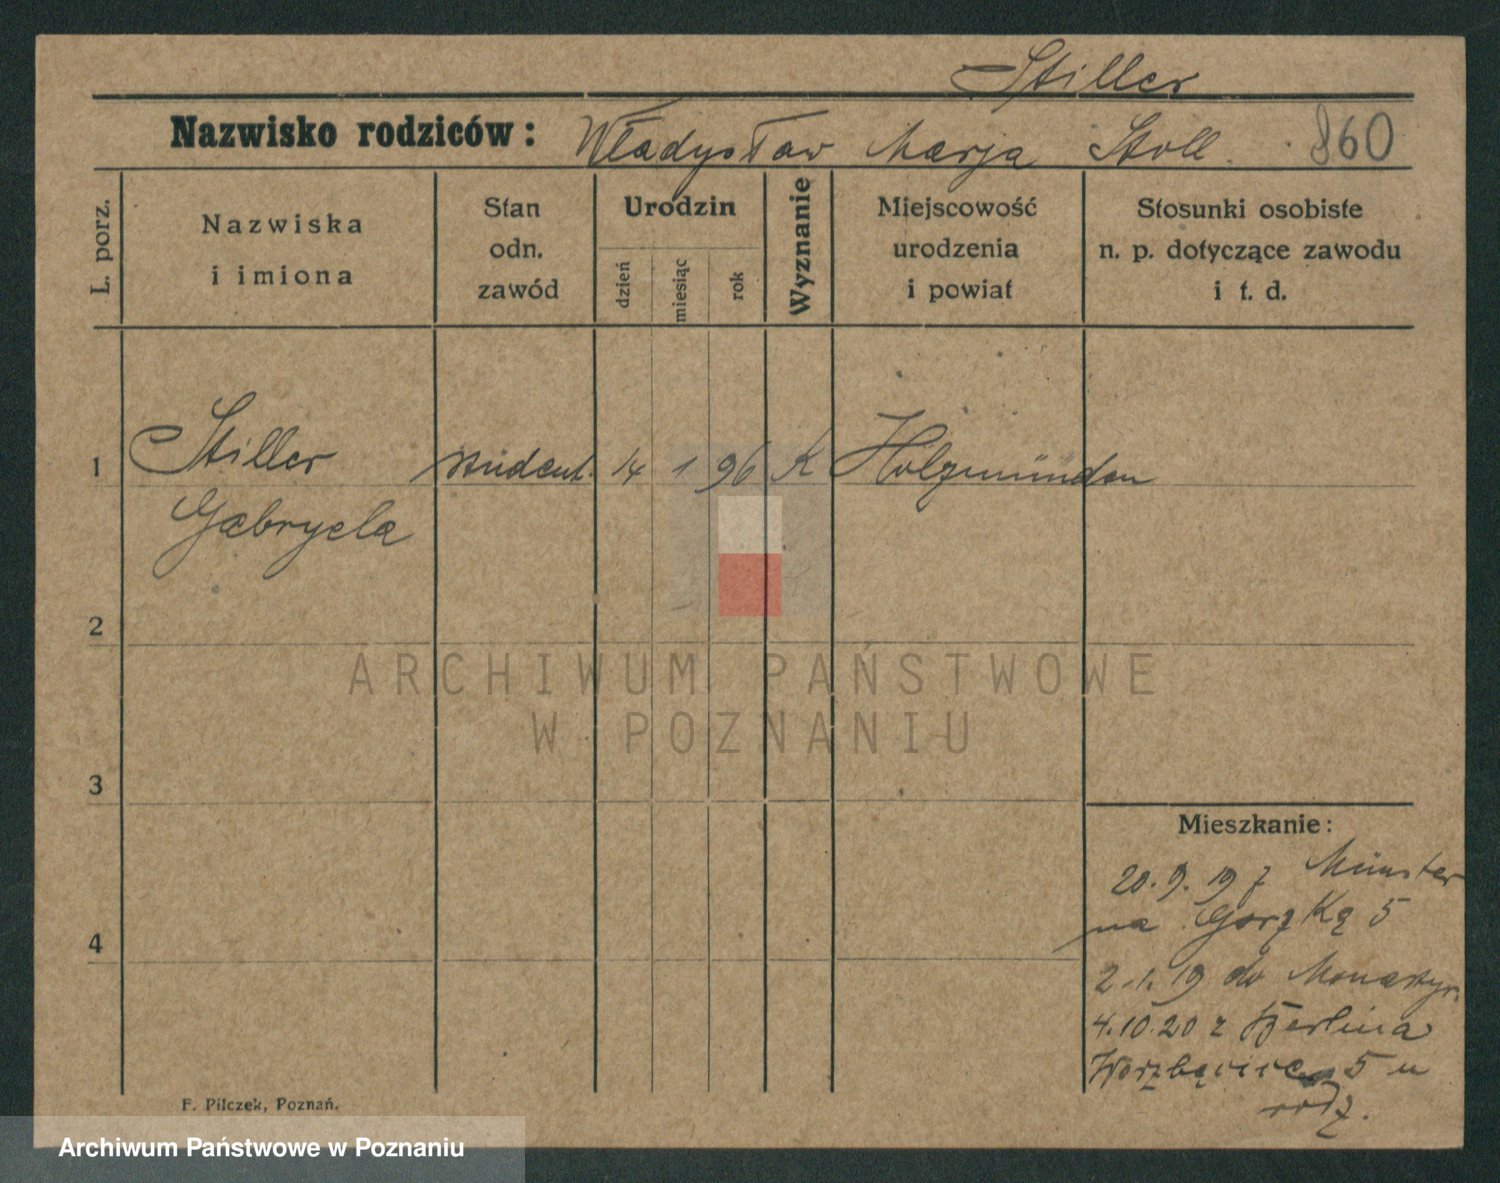 Stiller
Nazwisko rodziców: Władysław Marja Stoll. 860
L. porz.
Nazwiska
i imiona
Stan
odn.
zawód
Urodzin
dzień
miesiąc
rok
Wyznanie
Miejscowość
urodzenia
i powiat
Stosunki osobiste
n. p. dotyczące zawodu
i t. d.
1 Stiller student. 14 1 96 K Holzmünden
Gabryela
2
ARCHIWUM PAŃSTWOWE
W POZNANIU
3
Mieszkanie:
20.9.19 z Münster
na 5
4
2.1.19 do Monastyr.
4.10.20 z Berlina
5 u
rodz.
F. Pilczek, Poznań.
Archiwum Państwowe w Poznaniu